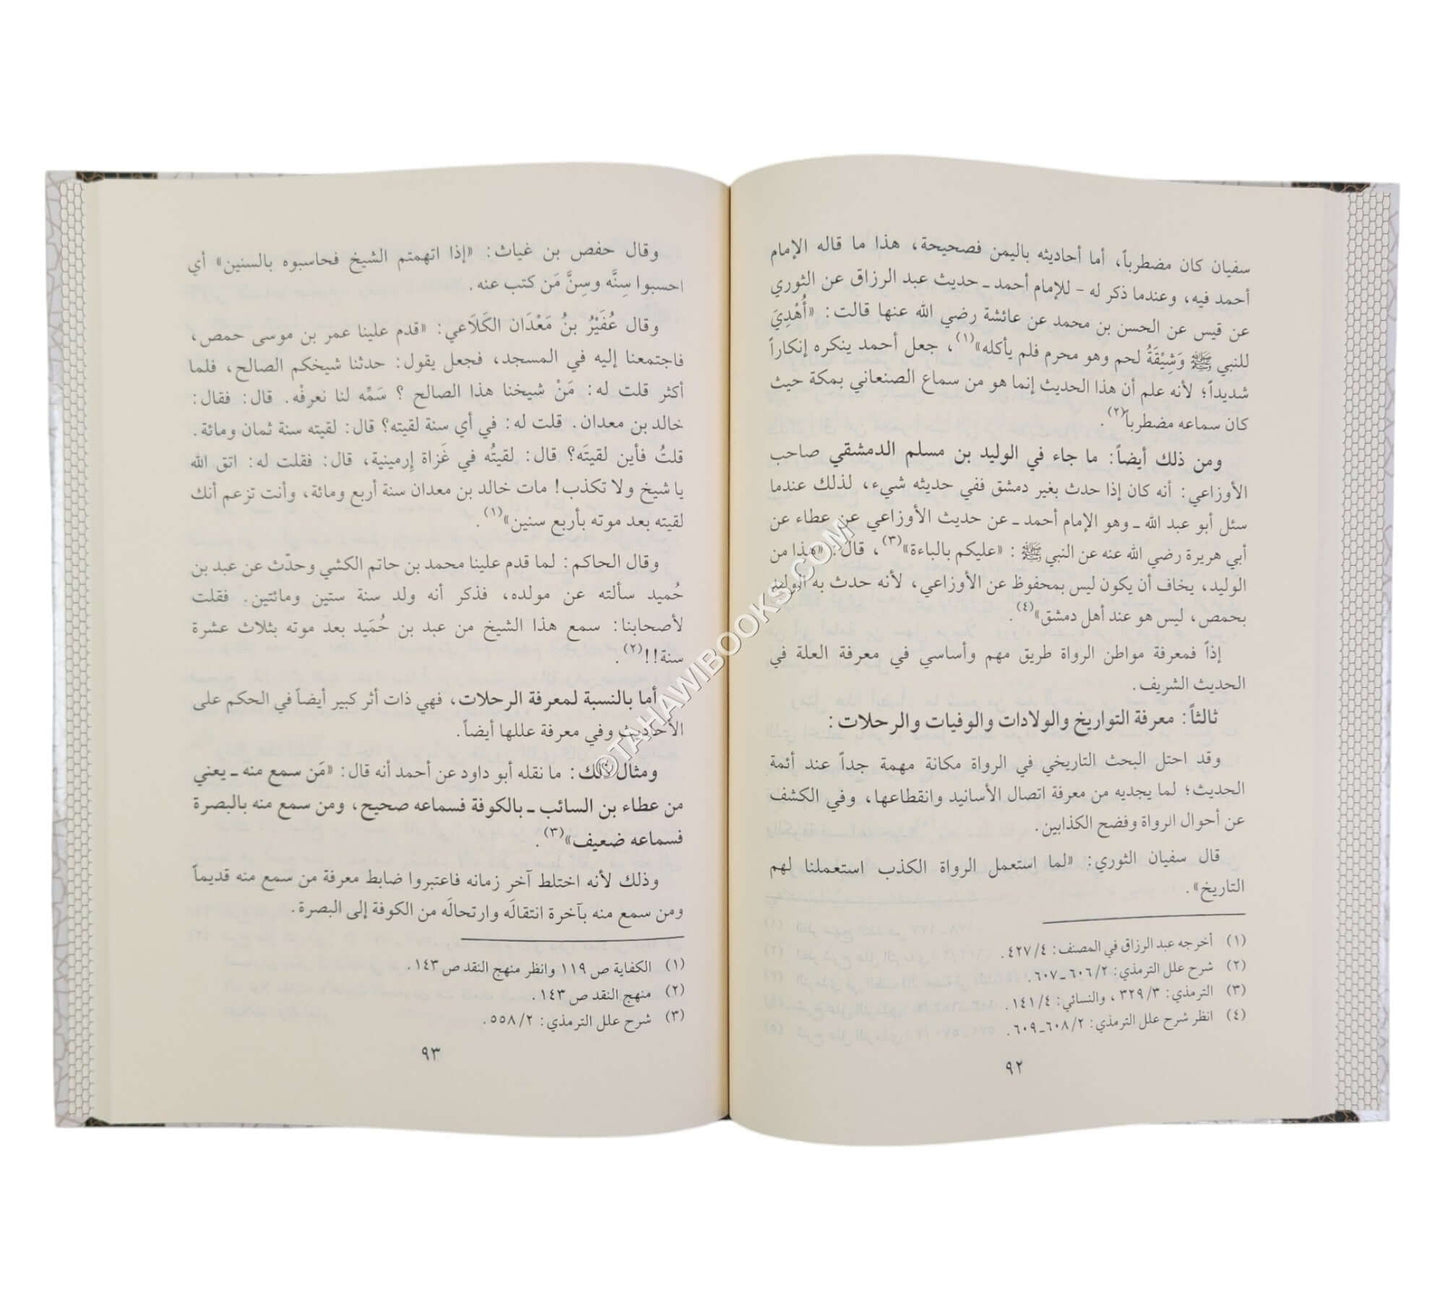 سفيان كان مضطرباً، أما أحاديثه باليمن فصحيحة، هذا ما قاله الإمام
أحمد فيه، وعندما ذكر له - للإمام أحمد ـ حديث عبد الرزاق عن الثوري
عن قيس عن الحسن بن محمد عن عائشة رضي الله عنها قالت: «أُهْدِيَ
للنبي ﷺ وَشِيْقَةُ لحم وهو محرم فلم يأكله»(١)، جعل أحمد ينكره إنكاراً
شديداً؛ لأنه علم أن هذا الحديث إنما هو من سماع الصنعاني بمكة حيث
كان سماعه مضطرباً(٢).
ومن ذلك أيضاً: ما جاء في الوليد بن مسلم الدمشقي صاحب
الأوزاعي: أنه كان إذا حدث بغير دمشق ففي حديثه شيء، لذلك عندما
سئل أبو عبد الله ـ وهو الإمام أحمد ـ عن حديث الأوزاعي عن عطاء عن
أبي هريرة رضي الله عنه عن النبي ﷺ: «عليكم بالباءة»(٣)، قال: «هذا من
الوليد، يخاف أن يكون ليس بمحفوظ عن الأوزاعي، لأنه حدث به الوليد
بحمص، ليس هو عند أهل دمشق»(٤).
إذاً فمعرفة مواطن الرواة طريق مهم وأساسي في معرفة العلة في
الحديث الشريف.
ثالثاً: معرفة التواريخ والولادات والوفيات والرحلات:
وقد احتل البحث التاريخي في الرواة مكانة مهمة جداً عند أئمة
الحديث؛ لما يجديه من معرفة اتصال الأسانيد وانقطاعها، وفي الكشف
عن أحوال الرواة وفضح الكذابين.
قال سفيان الثوري: «لما استعمل الرواة الكذب استعملنا لهم
التاريخ».
(١) أخرجه عبد الرزاق في المصنف: ٤٢٧/٤.
(٢) شرح علل الترمذي: ٦٠٦/٢ـ٦٠٧.
(٣) الترمذي: ٣٢٩/٣، والنسائي: ١٤١/٤.
(٤) انظر شرح علل الترمذي: ٦٠٨/٢ـ٦٠٩.
٩٢
وقال حفص بن غياث: «إذا اتهمتم الشيخ فحاسبوه بالسنين» أي
احسبوا سِنَّه وسِنَّ مَن كتب عنه.
وقال عُفَيْرُ بنُ مَعْدَان الكَلَاعي: «قدم علينا عمر بن موسى حمص،
فاجتمعنا إليه في المسجد، فجعل يقول: حدثنا شيخكم الصالح، فلما
أكثر قلت له: مَنْ شيخنا هذا الصالح ؟ سَمِّه لنا نعرفْه. قال: فقال:
خالد بن معدان. قلت له: في أي سنة لقيته؟ قال: لقيته سنة ثمان ومائة.
قلتُ فأين لقيتَه؟ قال: لقيتُه في غَزاة إرمينية، قال: فقلت له: اتق الله
يا شيخ ولا تكذب! مات خالد بن معدان سنة أربع ومائة، وأنت تزعم أنك
لقيته بعد موته بأربع سنين»(١).
وقال الحاكم: لما قدم علينا محمد بن حاتم الكشي وحدّث عن عبد بن
حُميد سألته عن مولده، فذكر أنه ولد سنة ستين ومائتين. فقلت
لأصحابنا: سمع هذا الشيخ من عبد بن حُمَيد بعد موته بثلاث عشرة
سنة!!(٢).
أما بالنسبة لمعرفة الرحلات، فهي ذات أثر كبير أيضاً في الحكم على
الأحاديث وفي معرفة عللها أيضاً.
ومثال ذلك: ما نقله أبو داود عن أحمد أنه قال: «مَن سمع منه ـ يعني
من عطاء بن السائب ـ بالكوفة فسماعه صحيح، ومن سمع منه بالبصرة
فسماعه ضعيف»(٣).
وذلك لأنه اختلط آخر زمانه فاعتبروا ضابط معرفة من سمع منه قديماً
ومن سمع منه بآخرة انتقالَه وارتحالَه من الكوفة إلى البصرة.
(١) الكفاية ص ١١٩ وانظر منهج النقد ص ١٤٣.
(٢) منهج النقد ص ١٤٣.
(٣) شرح علل الترمذي: ٥٥٨/٢.
٩٣
©TAHAWIBOOKS.COM